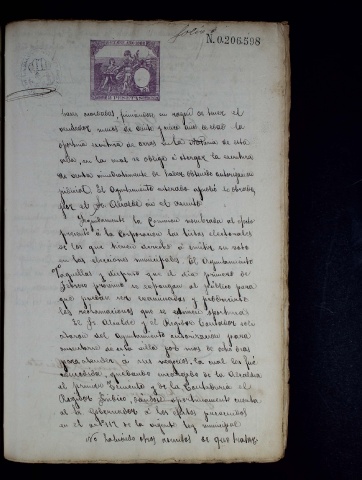 folio
N. 0.206.598
bases acordadas, firmándose en
vendedor menor de veinte y cinco años de edad la
oportuna escritura de en la Notaria de esta
en la cual se obligó á otorgar la escritura
de venta inmediatamente de haber obtenido autorizacion
judicial. El Ayuntamiento enterado aprobó lo obrado
por el Sr. Alcalde en el asunto.
Seguidamente la Comision nombrada al efecto
presentó á la Corporacion las listas electorales
de los que tienen derecho á emitir su voto
en las elecciones municipales. El Ayuntamiento
y dispuso que el dia primero de
Febrero próximo se expongan al público para
que puedan ser examinadas y
las reclamaciones que se oportunas.
El Sr. Alcalde y el Regidor Contador
del Ayuntamiento autorizacion para
ausentarse de esta villa por mas de ocho dias
para atender á sus negocios, la cual les fué
concedida, quedando encargado de la Alcaldia
el primer Teniente y de la Contaduria el
Regidor Síndico, dándose oportunamente cuenta
al Sr. Gobernador á los efectos prevenidos
en el artº 117 de la vigente ley municipal
No habiendo otros asuntos de que tratar